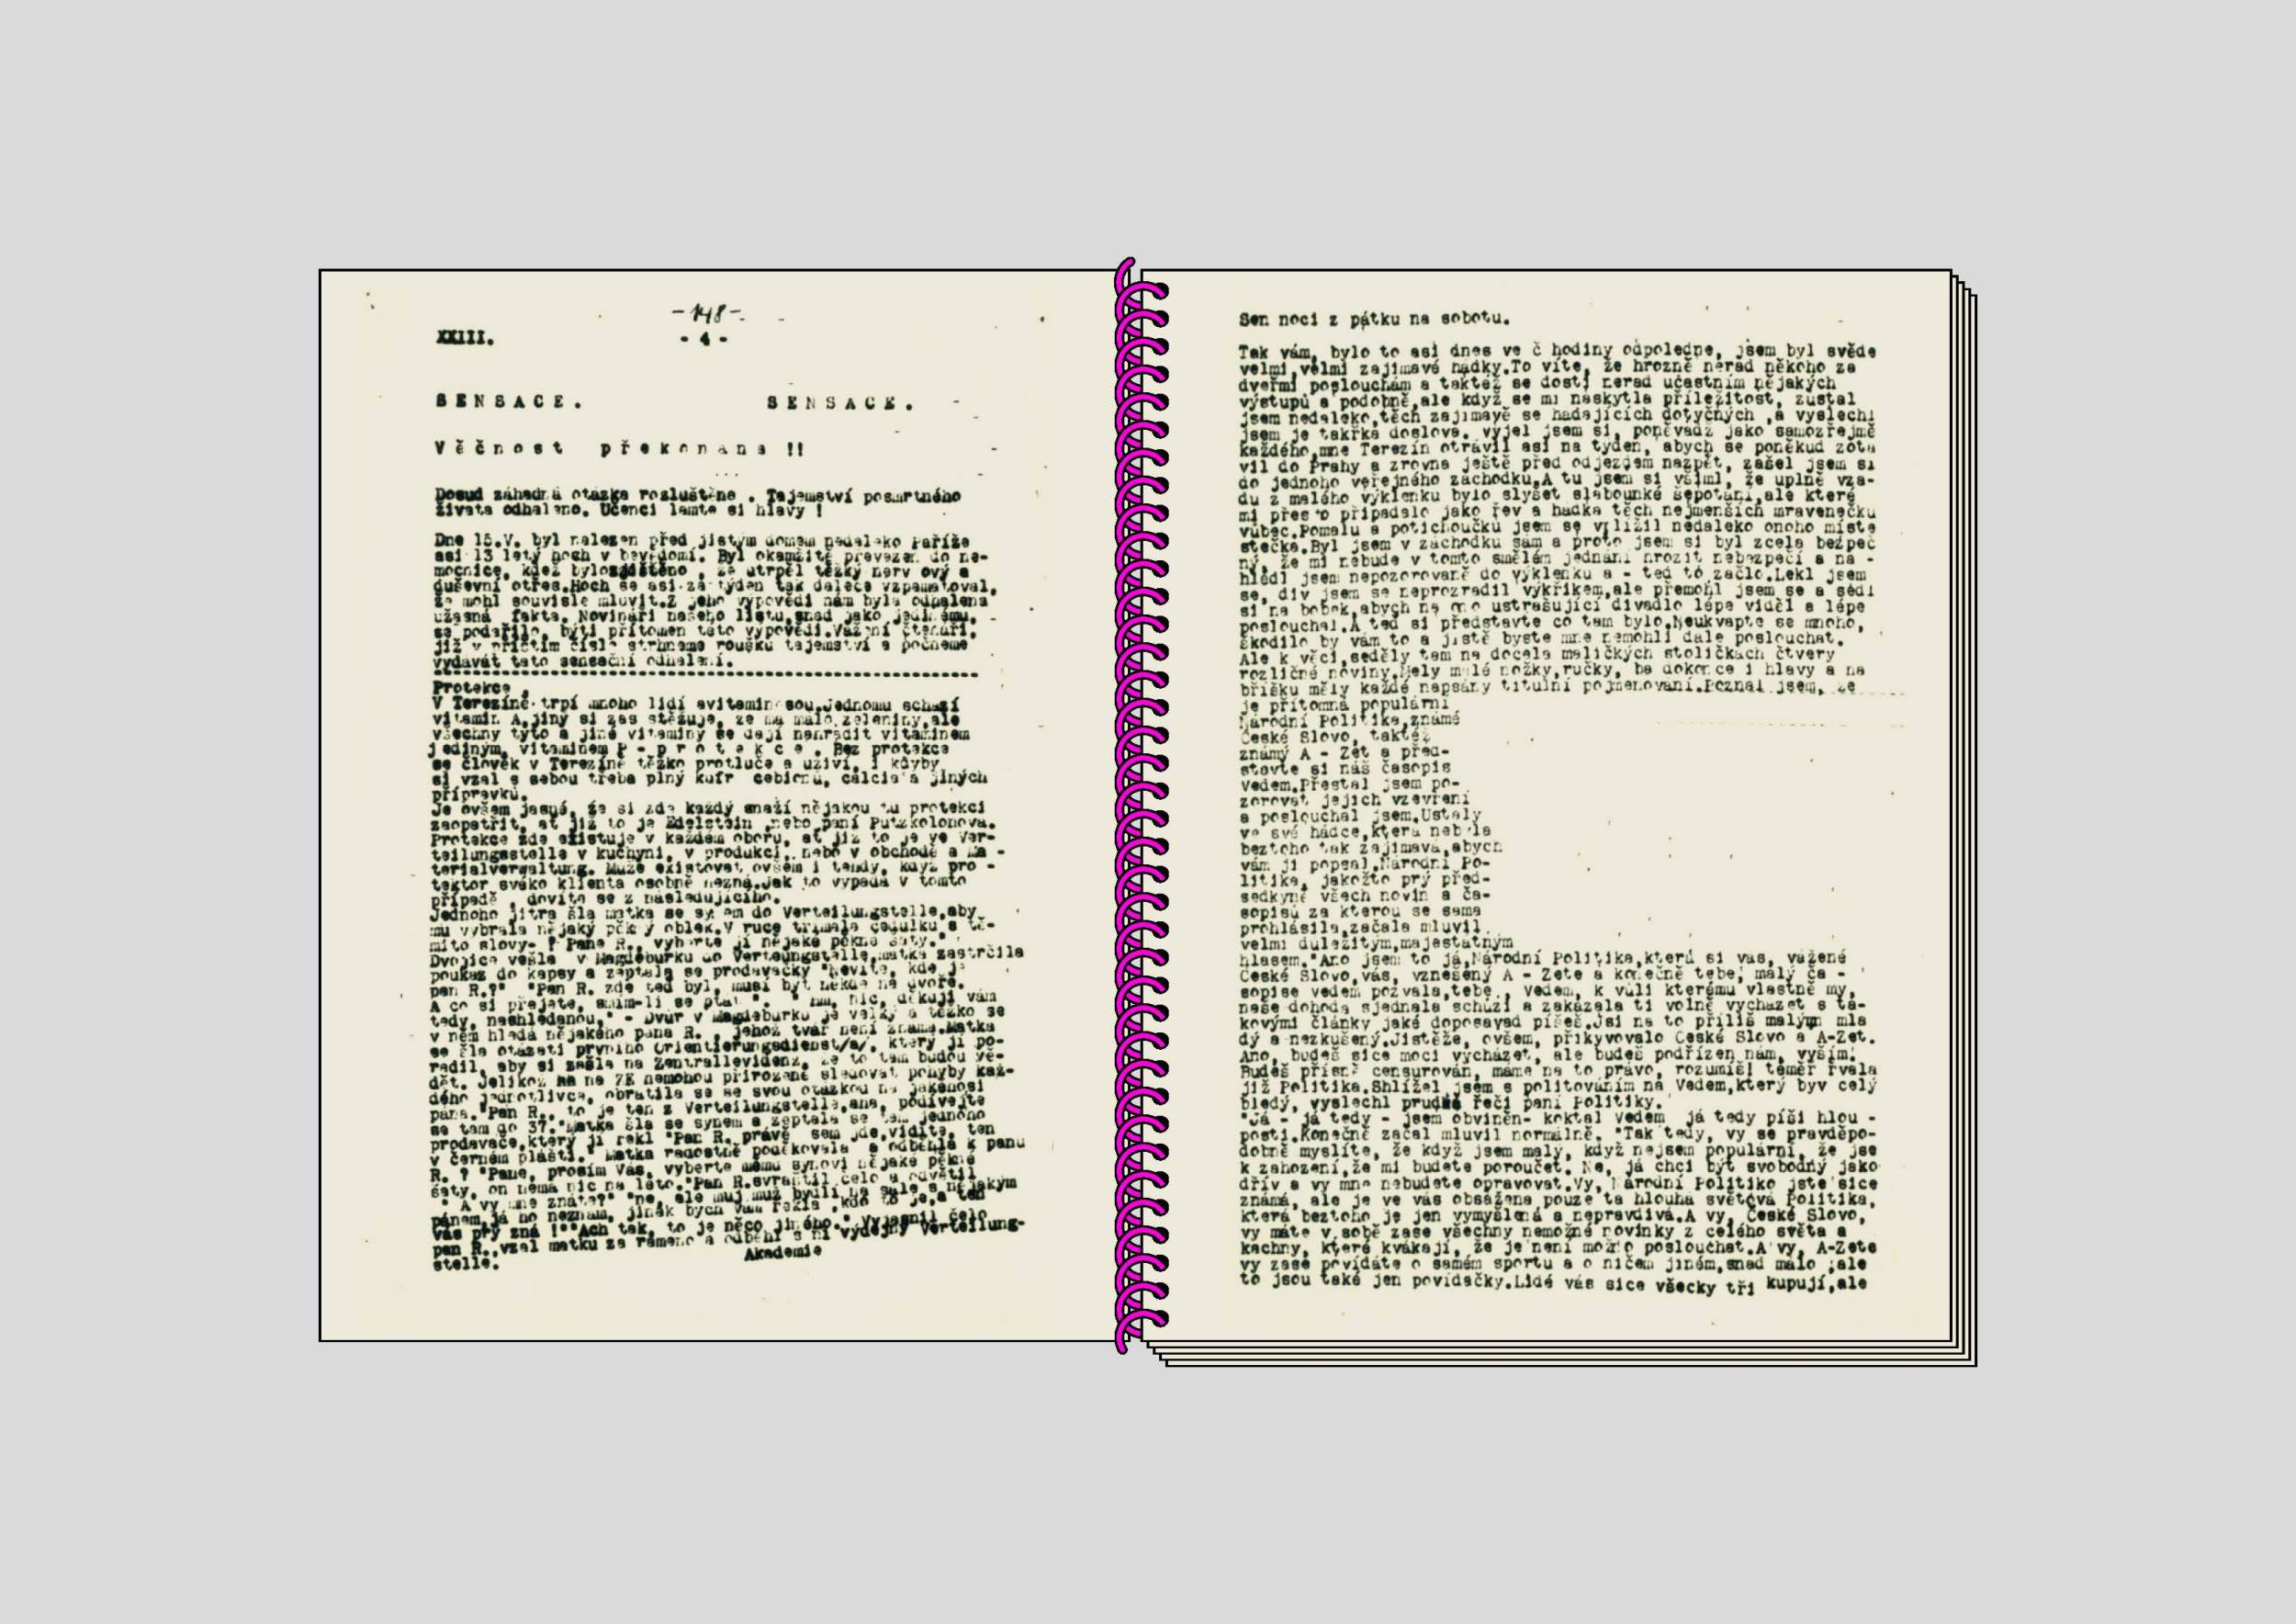 -148-
XXIII.
- 4 -
SENSACE. SENSACE.
Věčnost překonana !!
Dosud záhadná otázka rozluštěna . Tajemství posmrtného
života odhaleno. Učenci lamte si hlavy !
Dne 15.V. byl nalezen před jistým domem nedaleko Paříže
asi 13 letý hoch v bevědomí. Byl okamžitě převezen do ne-
mocnice, kdež bylo , že utrpěl těžký nerv ový a
duševní otřes.Hoch se asi za týden tak dalece vzpamatoval,
že mohl souvisle mluvit.Z jeho výpovědi nám byla odhalena
užasná fakta. Novináři našeho listu,snad jako jedinému,
se podařilo, býti přítomen této výpovědi.Vážení čtenáři,
již v příštím čísle strhneme roušku tajemství a počneme
vydávat tato sensační odhalení.
Protekce .
V Terezíně trpí mnoho lidí avitaminosou.Jednomu schází
vitamin A,jiný si zas stěžuje, že má málo zeleniny,ale
všechny tyto a jiné vitaminy se dají nahradit vitaminem
jediným, vitaminem P - p r o t e k c e . Bez protekce
se člověk v Terezíně těžko protluče a uživí, i kdyby
si vzal s sebou třeba plný kufr cebionu, calcia a jiných
přípravků.
Je ovšem jasné, že si zde každý snaží nějakou tu protekci
zaopatřit, ať již to je Edelstein nebo paní Putzkolonova.
Protekce zde existuje v každém oboru, ať již to je ve Ver-
teilungsstelle v kuchyni, v produkci, nebo v obchodě a Ma -
terialverwaltung. Může existovat ovšem i tehdy, když pro -
tektor svéko klienta osobně nezná.Jak to vypadá v tomto
případě , dovíte se z následujícího.
Jednoho jitra šla matka se synem do Verteilungstelle,aby
mu vybrala nějaký pěkný oblek.V ruce třímala cedulku s tě-
mito slovy- ? Pane R., vyberte jí nějaké pěkné šaty."
Dvojice vešla v Magdeburku do Verteungstelle,matka zastrčila
poukaz do kapsy a zeptala se prodavačky "Nevíte, kde je
pan R.?" "Pan R. zde teď byl, musí být někde na dvoře.
A co si přejete, smím-li se ptát ". " Hm, nic, děkuji vám
tedy, nashledanou." - Dvůr v Magdeburku je velký a těžko se
v něm hledá nějakého pana R. jehož tvář není známa.Matka
se šla otázati prvního Orientierungsdienst/a/, který jí po-
radil, aby si zašla na Zentrallevidenz, že to tam budou vě-
dět. Jelikož na ZE nemohou přirozeně sledovat pohyby kaž-
dého jednotlivce, obrátila se se svou otázkou na jakéhosi
pána."Pan R., to je ten z Verteilungstelle,ano, podívejte
se tam do 37."Matka šla se synem a zeptala se tam jednoho
prodavače,který jí řekl "Pan R. právě sem jde,vidíte, ten
v černém plášti." Matka radostně poděkovala a odběhla k panu
R. ? "Pane, prosím Vás, vyberte mému synovi nějaké pěkné
šaty, on nemá nic na léto."Pan R.svraštil čelo a odvětil
" A vy mne znáte?" "ne, ale muj muž bydlí na sále s nějakým
pánem,já ho neznám, jinák bych Vám řekla ,kdo to je,a ten
vás prý zná !""Ach tak, to je něco jiného." Vyjasnil čelo
pan R.,vzal matku za rameno a odběhl s ní výdejny Verteilung-
stelle.
Akademie
Sen noci z pátku na sobotu.
Tak vám, bylo to asi dnes ve č hodiny odpoledne, jsem byl svěde
velmi,velmi zajímavé hádky.To víte, že hrozně nerad někoho za
dveřmi poslouchám a taktéž se dosti nerad učastním nějakých
výstupů a podobně,ale když se mi naskytla příležitost, zůstal
jsem nedaleko,těch zajímavě se hádajících dotyčných ,a vyslechl
jsem je takřka doslova. Vyjel jsem si, poněvadž jako samozřejmě
každého,mne Terezín otrávil asi na týden, abych se poněkud zota
vil do Prahy a zrovna ještě před odjezdem nazpět, zašel jsem si
do jednoho veřejného záchodku.A tu jsem si všiml, že uplně vza-
du z malého výklenku bylo slyšet slabounké šepotání,ale které
mi přesto připadalo jako řev a hádka těch nejmenších mravenečků
vůbec.Pomalu a potichoučku jsem se vplížil nedaleko onoho míste
stečka.Byl jsem v záchodku sám a proto jsem si byl zcela bezpeč
ný, že mi nebude v tomto smělém jednání hrozit nebezpečí a na -
hlédl jsem nepozorovaně do výklenku a - teď to začlo.Lekl jsem
se, div jsem se neprozradil výkřikem,ale přemohl jsem se a sedl
si na bobek,abych na ono ustrašující divadlo lépe viděl a lépe
poslouchal.A teď si představte co tam bylo.Neukvapte se mnoho,
škodilo by vám to a jistě byste mne nemohli dále poslouchat.
Ale k věci,seděly tam na docela maličkých stoličkách čtvery
rozličné noviny.Měly malé nožky,ručky, ba dokonce i hlavy a na
bříšku měly každé napsány titulní pojmenování.Poznal jsem, že
je přítomna populární
Národní Politika,známé
České Slovo, taktéž
známý A - Zet a před-
stavte si náš časopis
Vedem.Přestal jsem po-
zorovat jejich vzevření
a poslouchal jsem.Ustaly
ve své hádce,která nebyla
beztoho tak zajímavá,abych
vám ji popsal.Národní Po-
litika, jakožto prý před-
sedkyně všech novin a ča-
sopisů za kterou se sama
prohlásila,začala mluvil
velmi duležitým,majestátným
hlasem."Ano jsem to já,Národní Politika,která si vás, vážené
České Slovo,vás, vznešený A - Zete a konečně tebe, malý ča -
sopise vedem pozvala,tebe , vedem, k vůli kterému vlastně my,
naše dohoda sjednala schůzi a zakázala ti volně vycházet s ta-
kovými články jaké doposavad píšeš.Jsi na to příliš malým mla
dý a nezkušený.Jistěže, ovšem, přikyvovalo České Slovo a A-Zet.
Ano, budeš sice moci vycházet, ale budeš podřízen nám, vyším!
Budeš přísně censurován, máme na to právo, rozumíš! téměř řvala
již Politika.Shlížel jsem s politováním na Vedem,který byv celý
bledý, vyslechl prudké řeči paní Politiky.
"Já - já tedy - jsem obviněn- koktal Vedem já tedy píši hlou -
posti.Konečně začal mluvil normálně. "Tak tedy, vy se pravděpo-
dobně myslíte, že když jsem malý, když nejsem populární, že jse
k zahození,že mi budete poroučet. Ne, já chci být svobodný jako
dřív a vy mne nebudete opravovat.Vy, Národní Politiko jste sice
známá, ale je ve vás obsažena pouze ta hloupá světová Politika,
která beztoho je jen vymyšlená a nepravdivá.A vy, České Slovo,
vy máte v sobě zase všechny nemožné novinky z celého světa a
kachny, které kvákají, že je není možno poslouchat.A vy, A-Zete
vy zase povídáte o samém sportu a o ničem jiném,snad málo ,ale
to jsou také jen povídačky.Lidé vás sice všecky tři kupují,ale